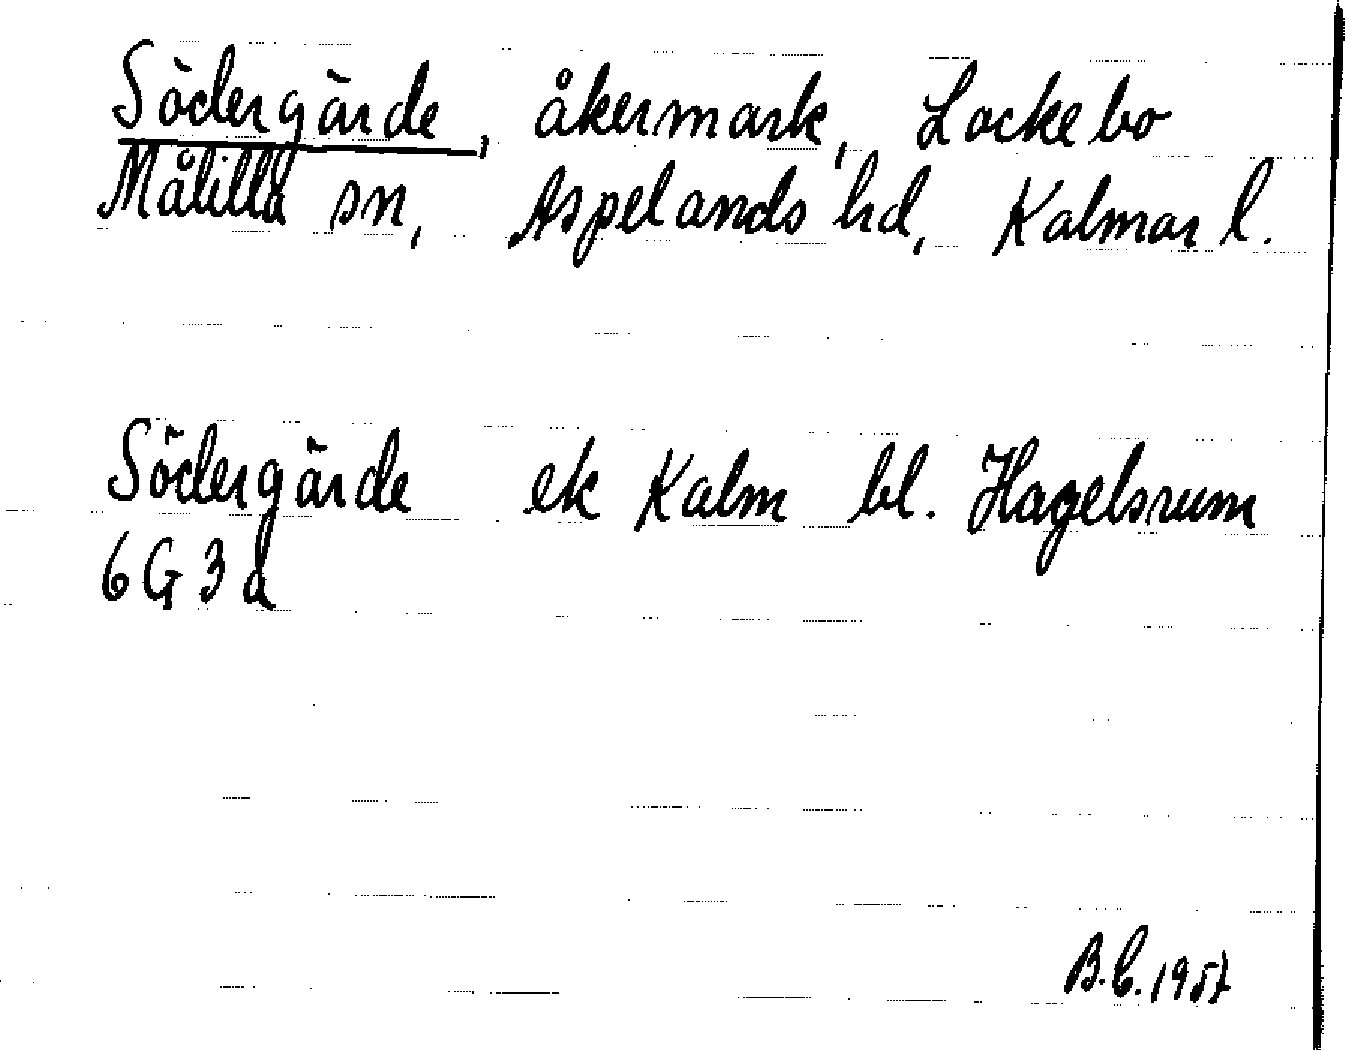 Södergärde, åkermark, Lockebo
Målilla sn, Aspelands hd, Kalmar l.
Södergärde ek Kalm bl. Hagelsrum
6G3d
B.C. 1957